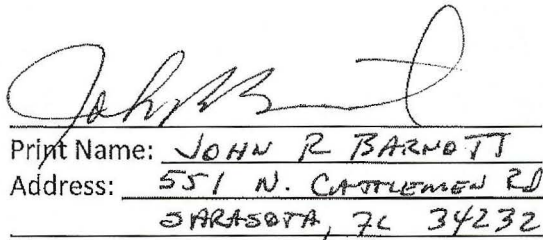 John R Barnott
Print Name: JOHN R BARNOTT
Address: 551 N. CATTLEMEN RD
SARASOTA, FL 34232